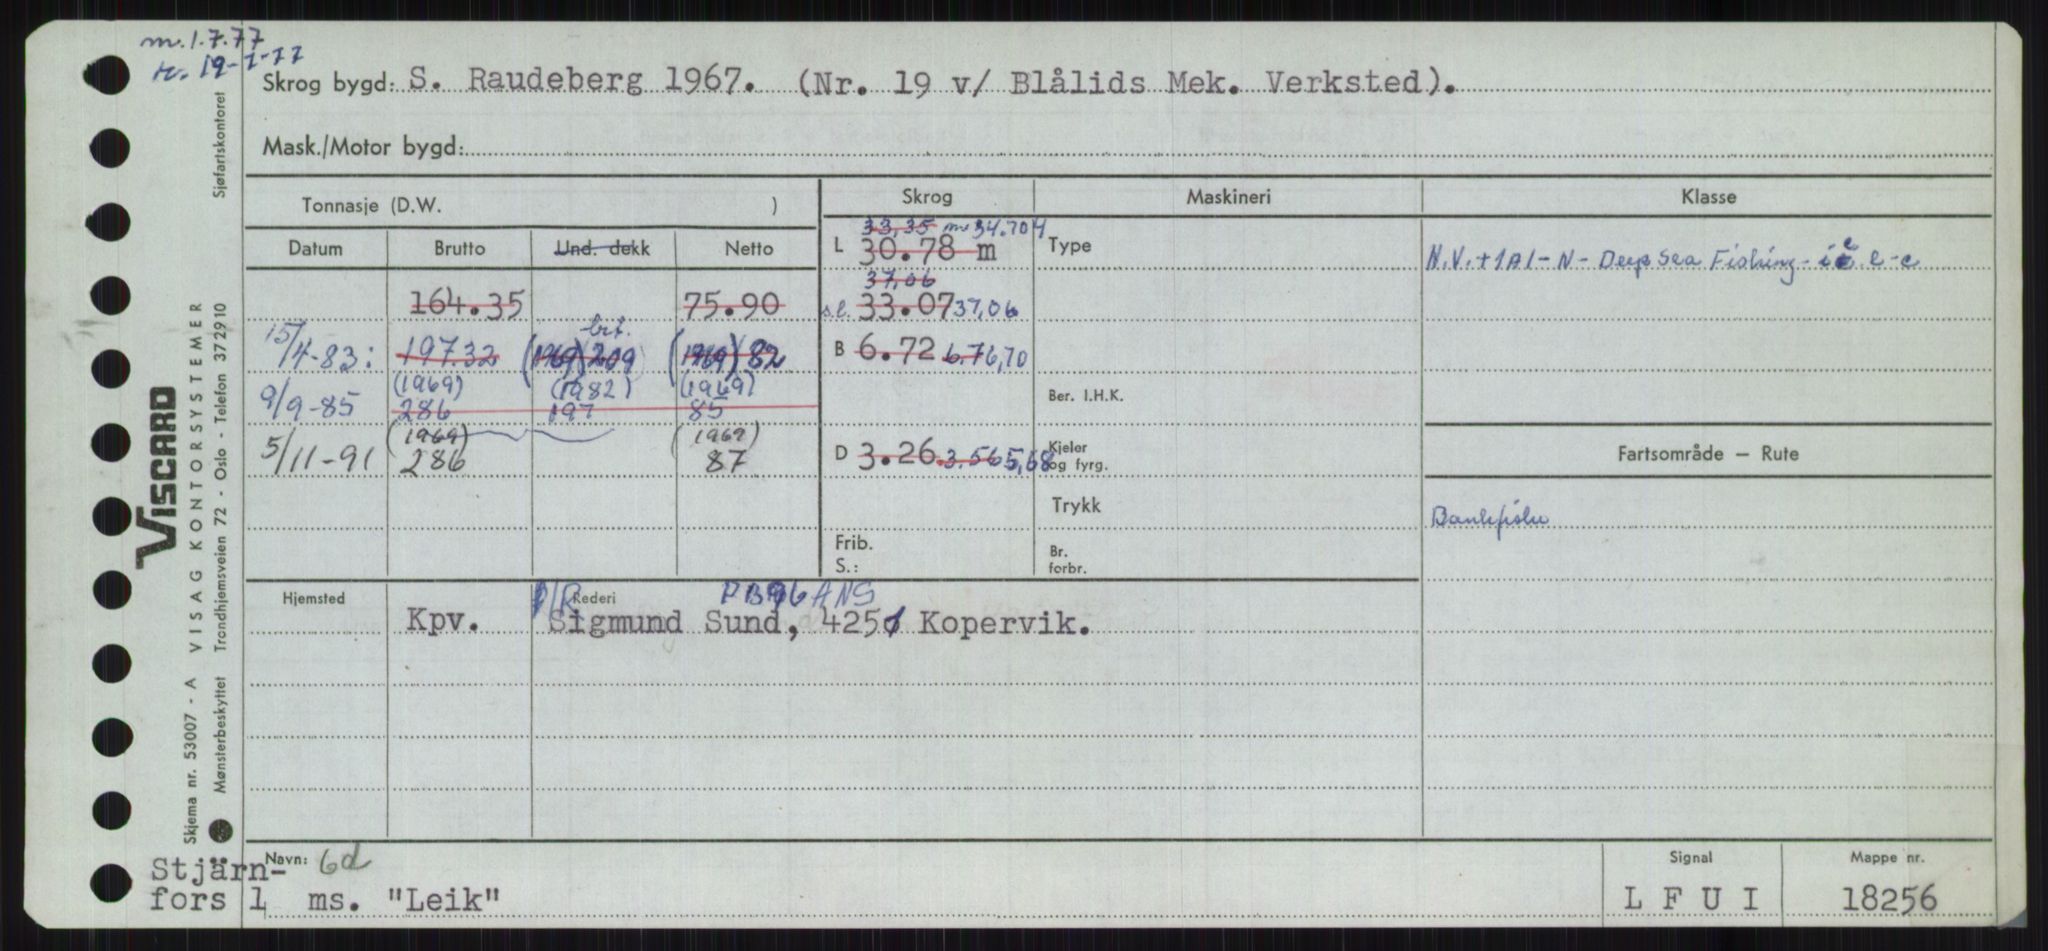 m. 1.7.77
19-7-77
Skrog bygd: S. Raudeberg 1967. (Nr. 19 v/ Blålids Mek. Verksted).
Mask./Motor bygd:
Tonnasje (D.W. )
Skrog
Maskineri
Klasse
Datum
Brutto
Und. dekk
Netto
164.35
75.90
brt.
15/4-83: 197.32 (1969) 209 (1969) 82
(1969) (1982) (1969)
9/9-85 286 197 85
(1969) (1969)
5/11-91 286 87
33,35 m 34.704
L 30.78 m
37,06
s.l. 33.07 37,06
B 6.72 6.7 6,70
D 3.26 3.56 5,68
Frib.
S.:
Type
Ber. I.H.K.
Kjeler
og fyrg.
Trykk
Br.
forbr.
N.V. +1A1-N- Deep Sea Fishing-
Fartsområde — Rute
Bankfiske
Hjemsted
Rederi
P/R
ANS
Kpv. Sigmund Sund, 4250 Kopervik.
Navn: 6d
Stjärn-
fors 1 ms. "Leik"
Signal
L F U I
Mappe nr.
18256
Sjøfartskontoret
VISCARD
VISAG KONTORSYSTEMER
Trondhjemsveien 72 - Oslo - Telefon 372910
Skjema nr. 53007 - A
Mønsterbeskyttet